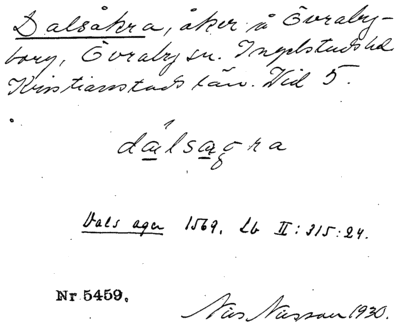 Dalsåkra, åker å Övraby-
borg, Övraby sn. Ingelstads hd
Kristianstads län. Vid 5.
dálsagra
Dals ager 1569. Lb II:315:24.
Nr 5459.
Nils Nilsson 1930.